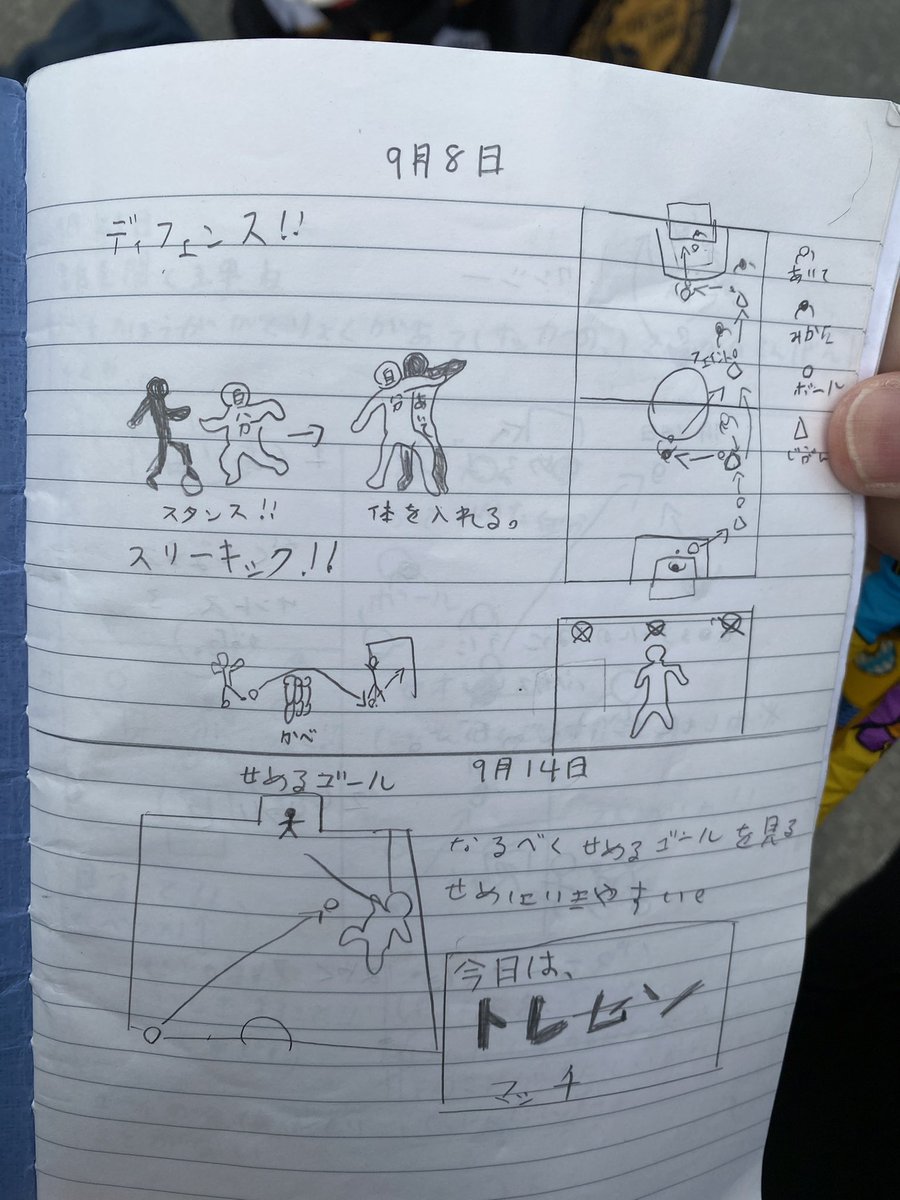 9月8日
ディフェンス!!
自分
自分
あいて
スタンス!!
体を入れる。
フェイント
あいて
みかた
ボール
じぶん
スリーキック!!
かべ
9月14日
せめるゴール
なるべくせめるゴールを見る
せめにいきやすい。
今日は、
トレセン
マッチ